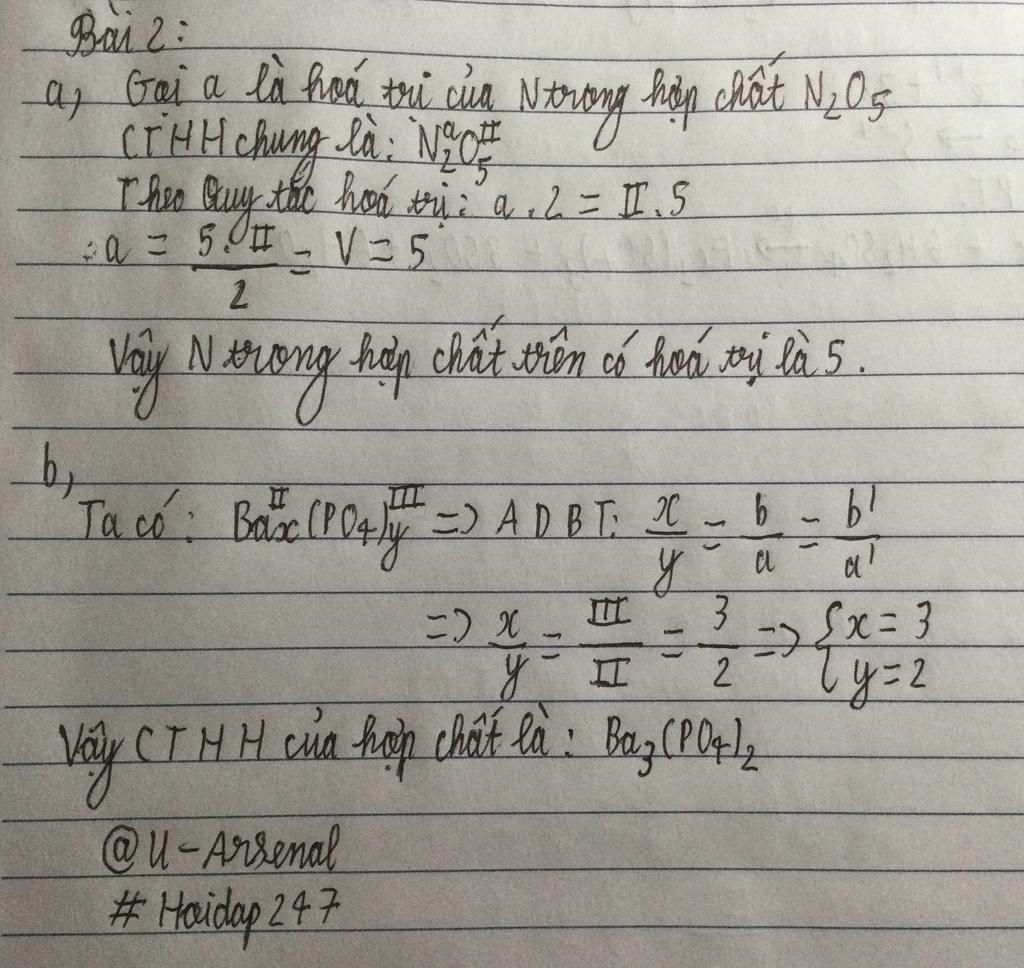 Bài 2:
a, Gọi a là hoá trị của N trong hợp chất N₂O₅
CTHH chung là: N₂ᵃO₅ᴵᴵ
Theo Quy tắc hoá trị: a . 2 = II . 5
: a = (5 . II)/2 = V = 5
Vậy N trong hợp chất trên có hoá trị là 5.
b,
Ta có: Baₓᴵᴵ(PO₄)yᴵᴵᴵ => ADBT: x/y = b/a = b'/a'
=> x/y = III/II = 3/2 => { x = 3
y = 2
Vậy CTHH của hợp chất là: Ba₃(PO₄)₂
@U-Arsenal
# Hoidap247